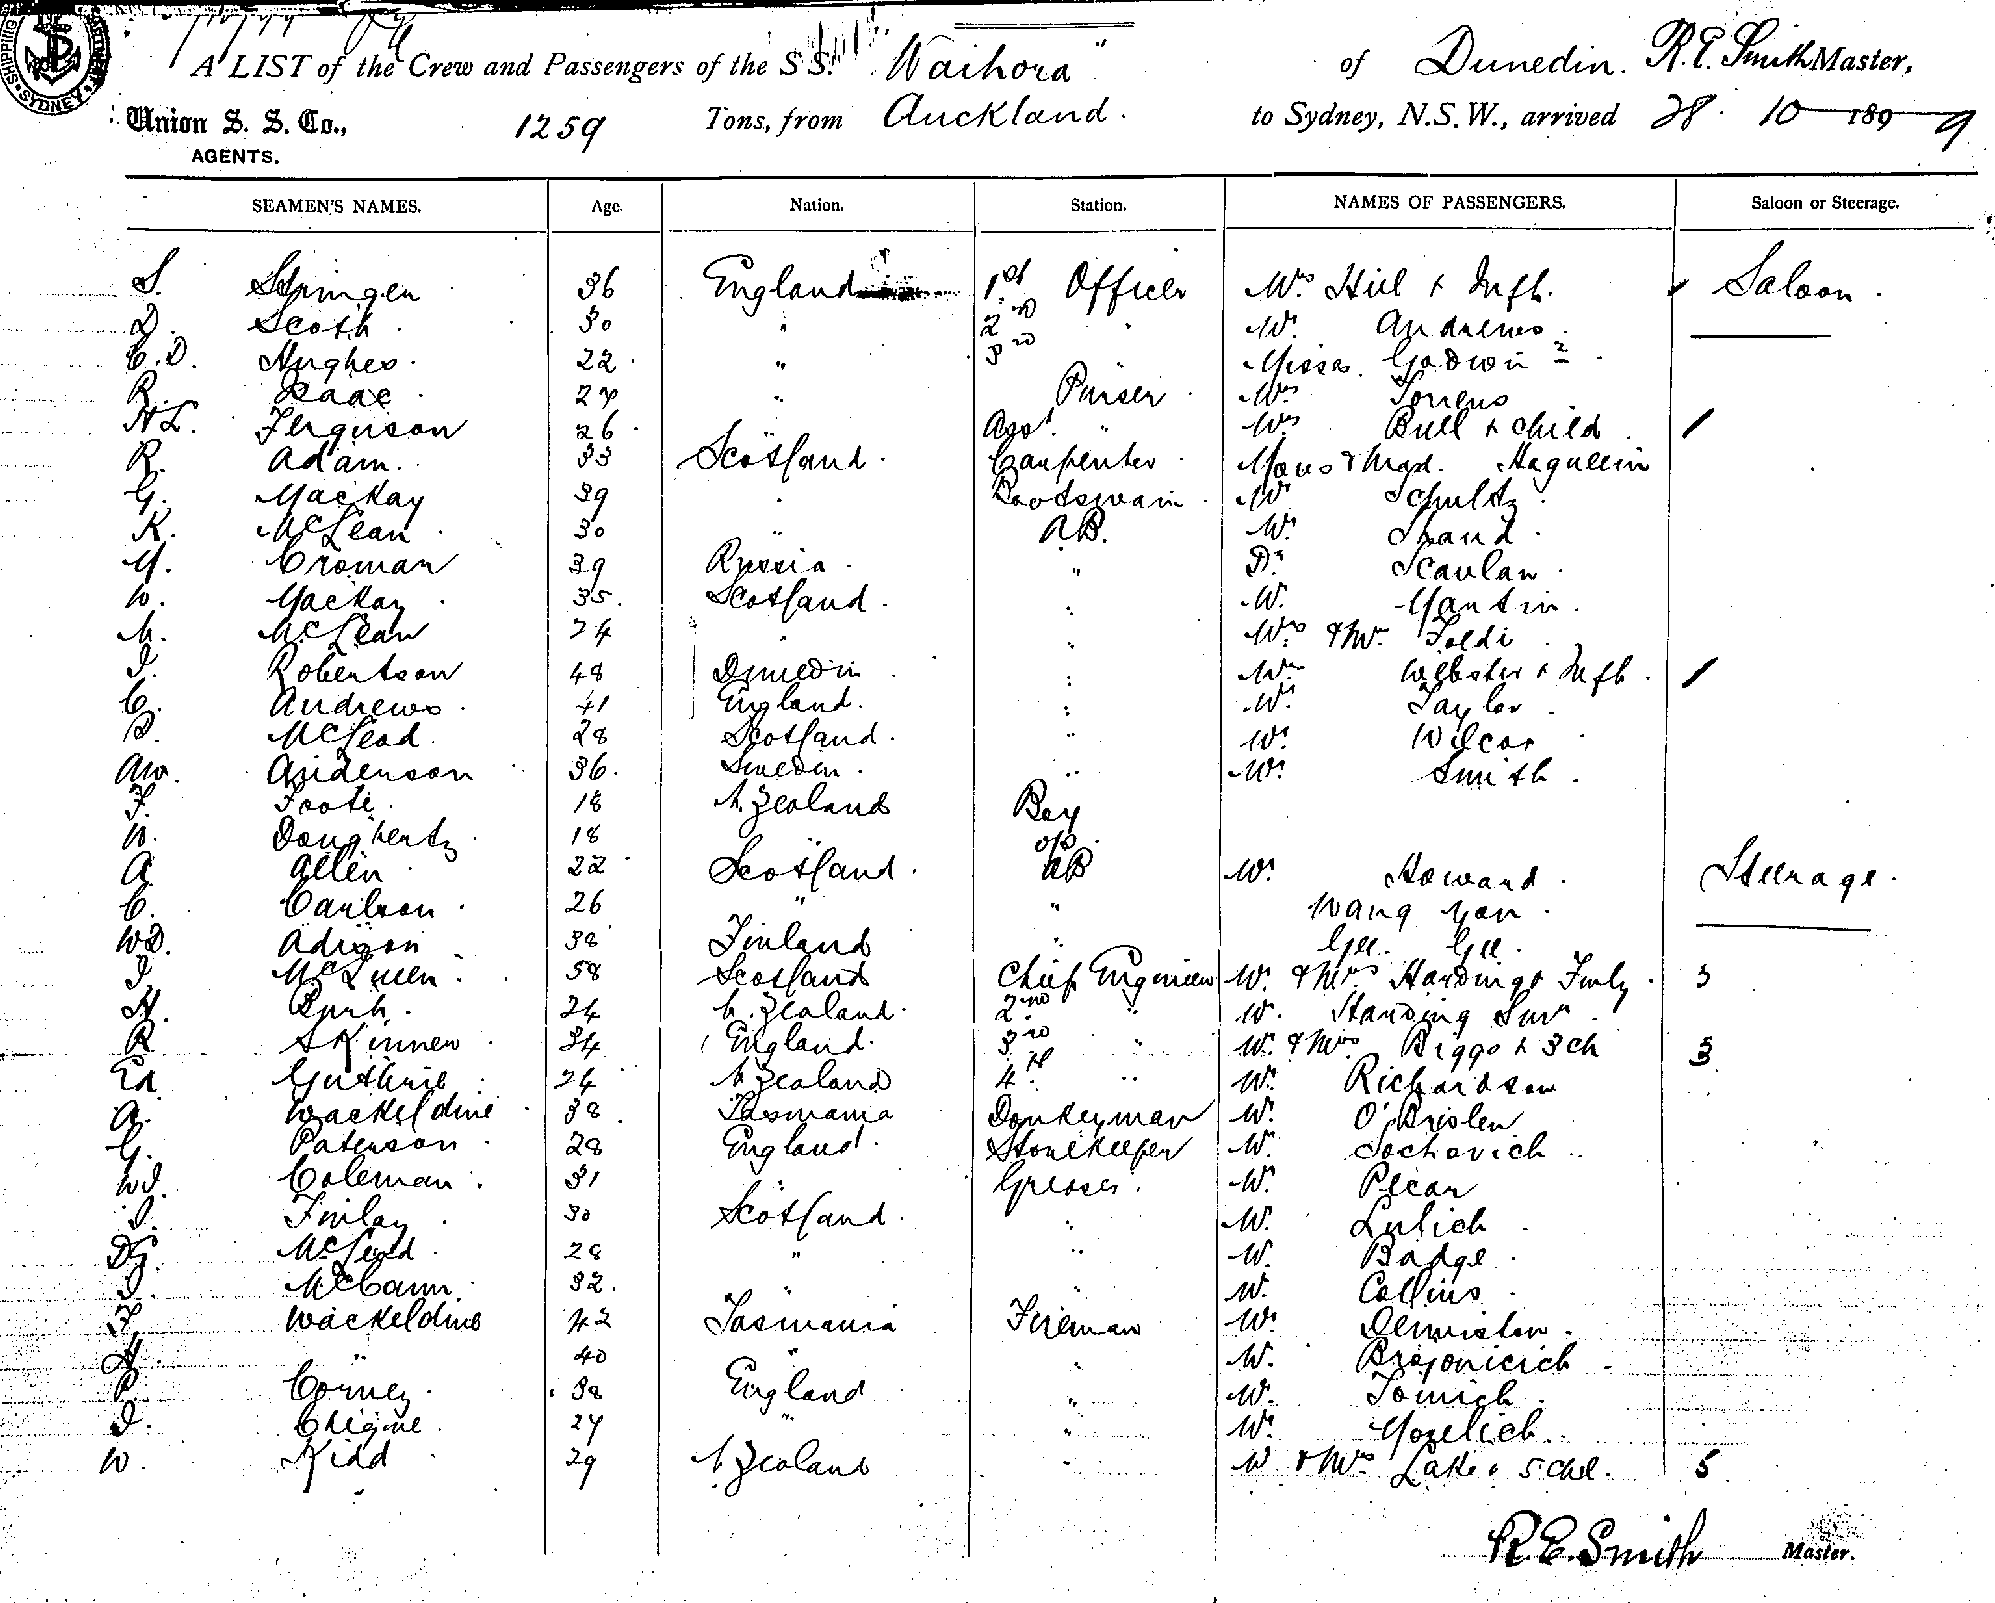 A LIST of the Crew and Passengers of the S S. "Waihora" of Dunedin. R. E. Smith Master,
Union S. S. Co., 1259 Tons, from Auckland. to Sydney, N.S.W., arrived 28. 10 1899
AGENTS.
SEAMEN'S NAMES. Age. Nation. Station. NAMES OF PASSENGERS. Saloon or Steerage.
S. Stringer 36 England 1st Officer Mrs Hill & Inft. Saloon.
D. Scott 30 " 2nd " Mr. Andrews.
C.D. Hughes. 22 " 3rd Misses Godwin 2
R. Isaac 24 " Purser Mrs Torrens
H L. Ferguson 26 Asst. " Mrs Bull & child 1
R. Adam. 33 Scotland. Carpenter Mons & Mad.
G. Mackay 39 " Boatswain Mr Schultz.
K. McLean 30 " A.B. Mr. Shand.
M. Croman 39 Russia. " Dr. Scanlan.
W. Mackay 35. Scotland. " Mr. Martin.
M. McLean 24 " " Mrs & Mr. Foldi
J. Robertson 48 Dunedin " Mrs Webster & Inft. 1
C. Andrews. 41 England. " Mr. Taylor
D. McLeod. 28 Scotland. " Mr. Wilcox
AW. Anderson 36. Sweden. " Mr. Smith.
F. Foote. 18 N. Zealand Boy
W. Dougherty 18 " o/s.
A Allen 22 Scotland. AB Mr. Howard. Steerage.
C. Carlson. 26 " " Wang Yon.
WD. 38 Finland " Gee. Gee.
J McQueen. 58 Scotland Chief Engineer Mr. & Mrs Harding & Fmly. 3
H. 24 N. Zealand. 2nd " Mr. Harding Snr
R Skinner 34 England. 3rd " Mr. & Mrs Biggs & 3 ch 3
Ed Guthrie 24 N Zealand 4th " Mr. Richardson
A. Wackeldine 38 Tasmania Donkeyman Mr. O'Brislen
G. Paterson 28 England. Storekeeper Mr. Sochovich
WJ. Coleman. 31 " Greaser. Mr. Pecar
J. Finlay 30 Scotland. " Mr. Lulich
DG. McLeod. 28 " " Mr. Badge.
J. McCann. 32. " " Mr. Collins
F. Wackeldine 42 Tasmania Fireman Mr. Denniston.
H. " 40 " " Mr.
P. Corney. 38 England " Mr. Tomich.
J. 24 " " Mr.
W. Kidd 29 N Zealand " Mr & Mrs Lake & 5 chd. 5
R. E. Smith Master.